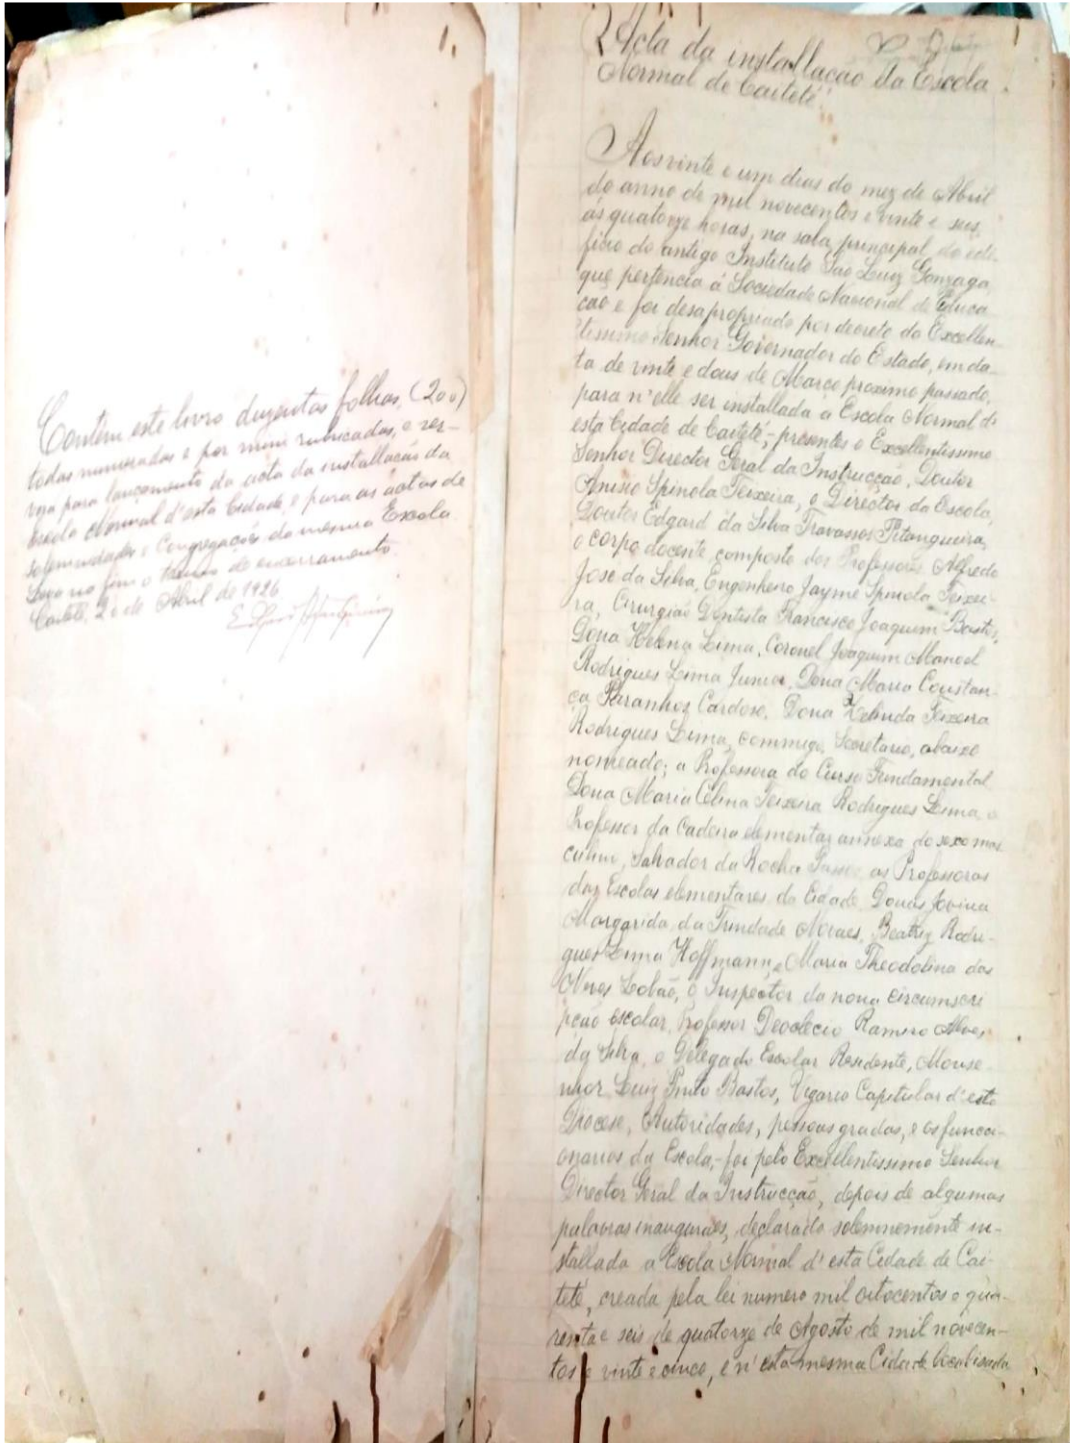 1.
Contêm este livro duzentas folhas, (200)
todas numeradas e por mim rubricadas, e ser-
virá para lançamento da acta da installacão da
Escola Normal d'esta Cidade e para as actas de
solemnidades e Congregação da mesma Escola.
Levo no fim o termo de encerramento.
Caiteté, 20 de Abril de 1926
Acta da installacão da Escola
Normal de Caiteté.
Aos vinte e um dias do mez de Abril
do anno de mil novecentos e vinte e seis,
ás quatorze horas, na sala principal do edi-
ficio do antigo Instituto São Luiz Gonzaga,
que pertencia á Sociedade Nacional de Educa-
cão e foi desapropriado por decreto do Excellen-
tissimo Senhor Governador do Estado, em da-
ta de vinte e dous de Março proximo passado,
para n'elle ser installada a Escola Normal d'
esta Cidade de Caiteté,- presentes o Excellentissimo
Senhor Director Geral da Instrucção, Doutor
Anisio Spinola Teixeira, o Director da Escola,
Doutor Edgard da Silva Travassos Pitangueira,
o corpo docente composto dos Professores Alfredo
José da Silva, Engenheiro Jayme Spinola Teixei-
ra, Cirurgião Dentista Francisco Joaquim Bastos,
Dona Helena Lima, Coronel Joaquim Manoel
Rodrigues Lima Junior, Dona Maria Constan-
ça Paranhos Cardoso, Dona Teixeira
Rodrigues Lima, commigo, Secretario, abaixo
nomeado; a Professora do Curso Fundamental
Dona Maria Celina Teixeira Rodrigues Lima, o
Professor da Cadeira elementar annexa do sexo mas
culino, Salvador da Rocha Passos, as Professoras
das Escolas elementares da Cidade, Donas Jovina
Margarida da Trindade Moraes, Beatriz Rodri-
gues Lima Hoffmann, e Maria Theodolina das
Neves Lobão, o Inspector da nona circumscri
pção escolar, Professor Deoclecio Ramiro Alves
da Silva, o Delegado Escolar Residente, Monse
nhor Luiz Pinto Bastos, Vigario Capitular d'esta
Diocese, Autoridades, pessoas gradas, e os funcci-
onarios da Escola,- foi pelo Excellentissimo Senhor
Director Geral da Instrucção, depois de algumas
palavras inauguraes, declarado solemnemente in-
stallada a Escola Normal d'esta Cidade de Cai-
teté, creada pela lei numero mil oitocentos e qua-
renta e seis de quatorze de Agosto de mil novecen-
tos e vinte e cinco, e n'esta mesma Cidade localisada